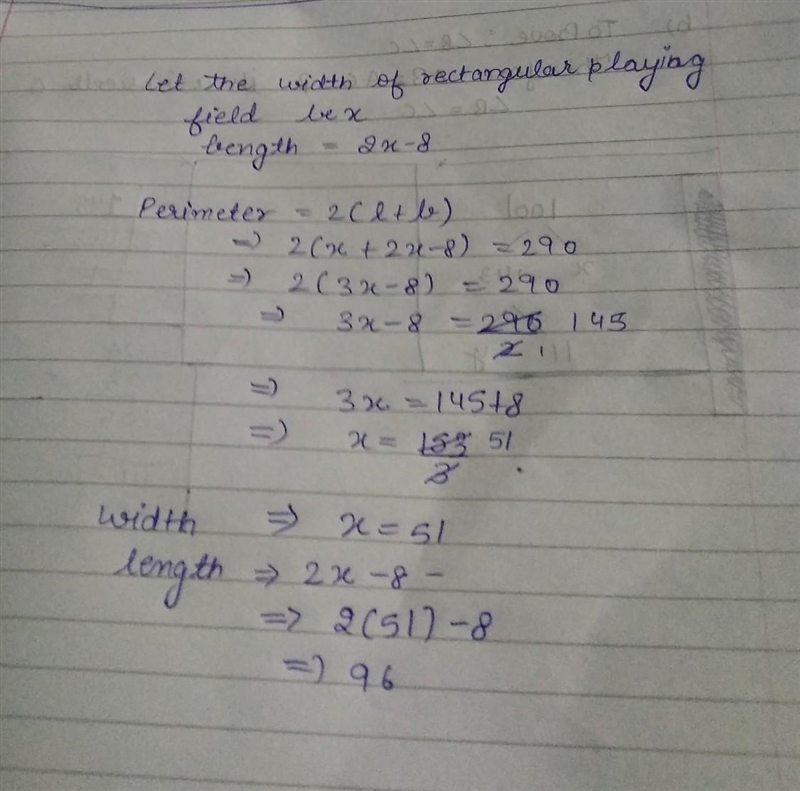 Let the width of rectangular playing
field be x
length = 2x-8
Perimeter = 2(l+b)
=> 2(x + 2x-8) = 290
=> 2(3x-8) = 290
=> 3x-8 = 290 145
2 1
=> 3x = 145+8
=> x = 153 51
3
width => x = 51
length => 2x -8 -
=> 2(51) -8
=> 96